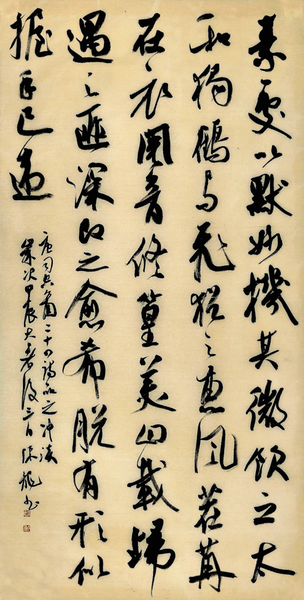 素處以默妙機其微飲之太
和獨鶴与飛猶之惠風荏苒
在衣閱音修篁美曰載歸
遇之匪深即之愈希脫有形似
握手已違
唐司空圖二十四詩品之沖淡
歲次甲辰大暑後三日